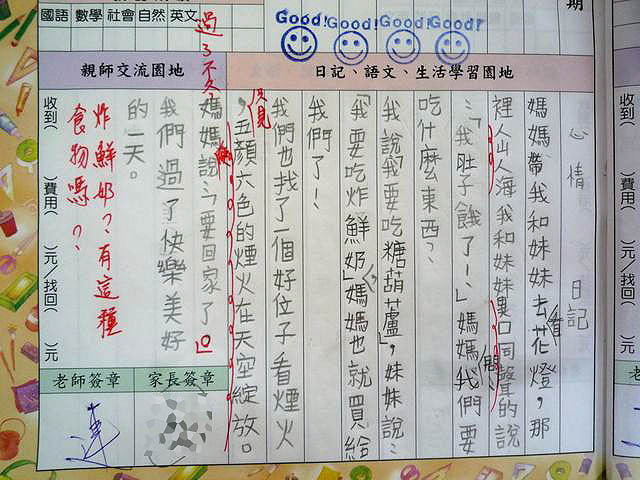 期
國語 數學 社會 自然 英文
Good! Good! Good! Good!
日記、語文、生活學習園地
親師交流園地
心情日記
媽媽帶我和妹妹去看花燈，那
裡人山人海我和妹妹異口同聲的說
：「我肚子餓了！」媽媽問：我們要
吃什麼東西？
我說我要吃糖葫蘆，妹妹說：
「要吃炸鮮奶」媽媽也就買給
我們了！
我們也找了一個好位子看煙火
，只見五顏六色的煙火在天空綻放。
過了不久媽媽說：「要回家了。」
我們過了快樂美好
的一天。
炸鮮奶？有這種
食物嗎？
收到( )費用( )元/找回( )元
家長簽章
老師簽章
收到
老師